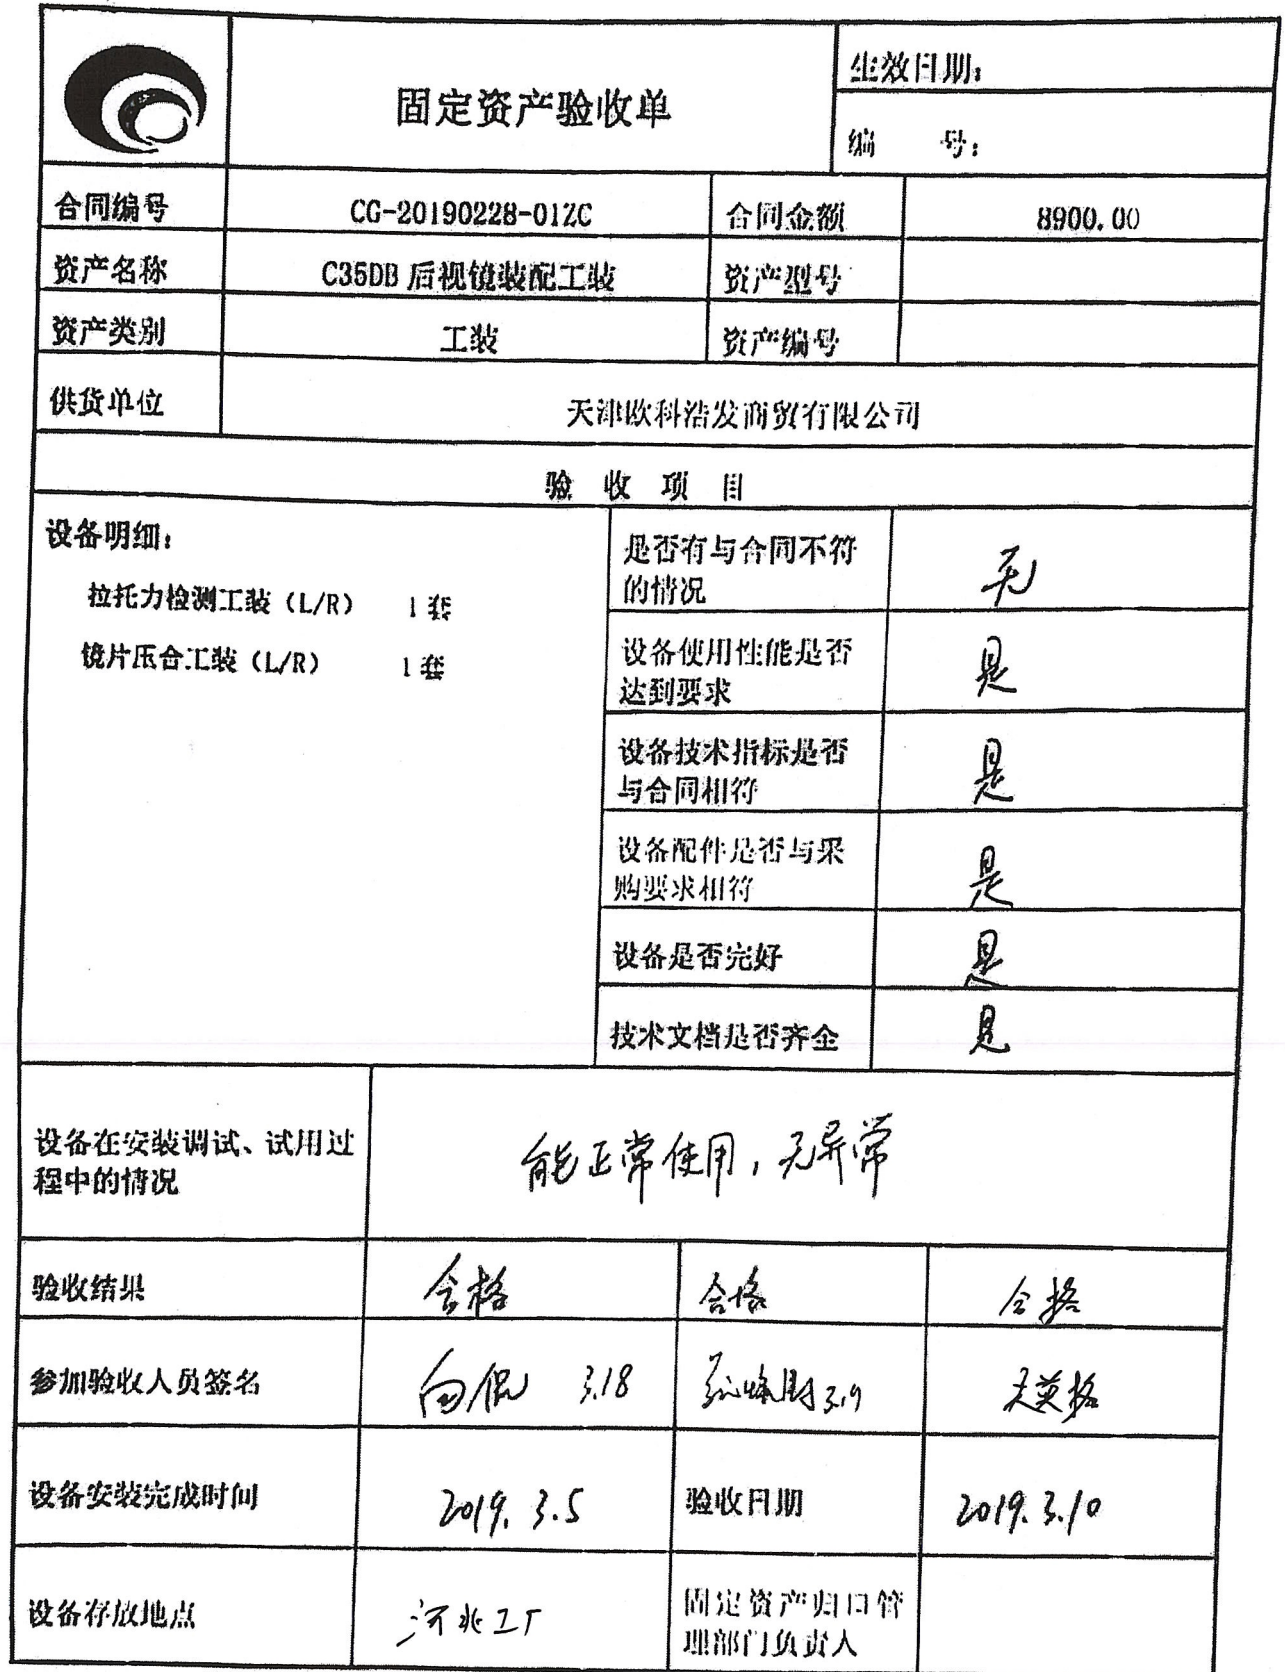 固定资产验收单
生效日期：
编 号：
合同编号 CG-20190228-01ZC 合同金额 8900.00
资产名称 C35DB 后视镜装配工装 资产型号
资产类别 工装 资产编号
供货单位 天津欧科浩发商贸有限公司
验 收 项 目
设备明细：
拉托力检测工装（L/R） 1 套
镜片压合工装（L/R） 1 套
是否有与合同不符
的情况 无
设备使用性能是否
达到要求 是
设备技术指标是否
与合同相符 是
设备配件是否与采
购要求相符 是
设备是否完好 是
技术文档是否齐全 是
设备在安装调试、试用过
程中的情况
能正常使用，无异常
验收结果 合格 合格 合格
参加验收人员签名 3.18
设备安装完成时间 2019.3.5 验收日期 2019.3.10
设备存放地点 河北工厂
固定资产归口管
理部门负责人